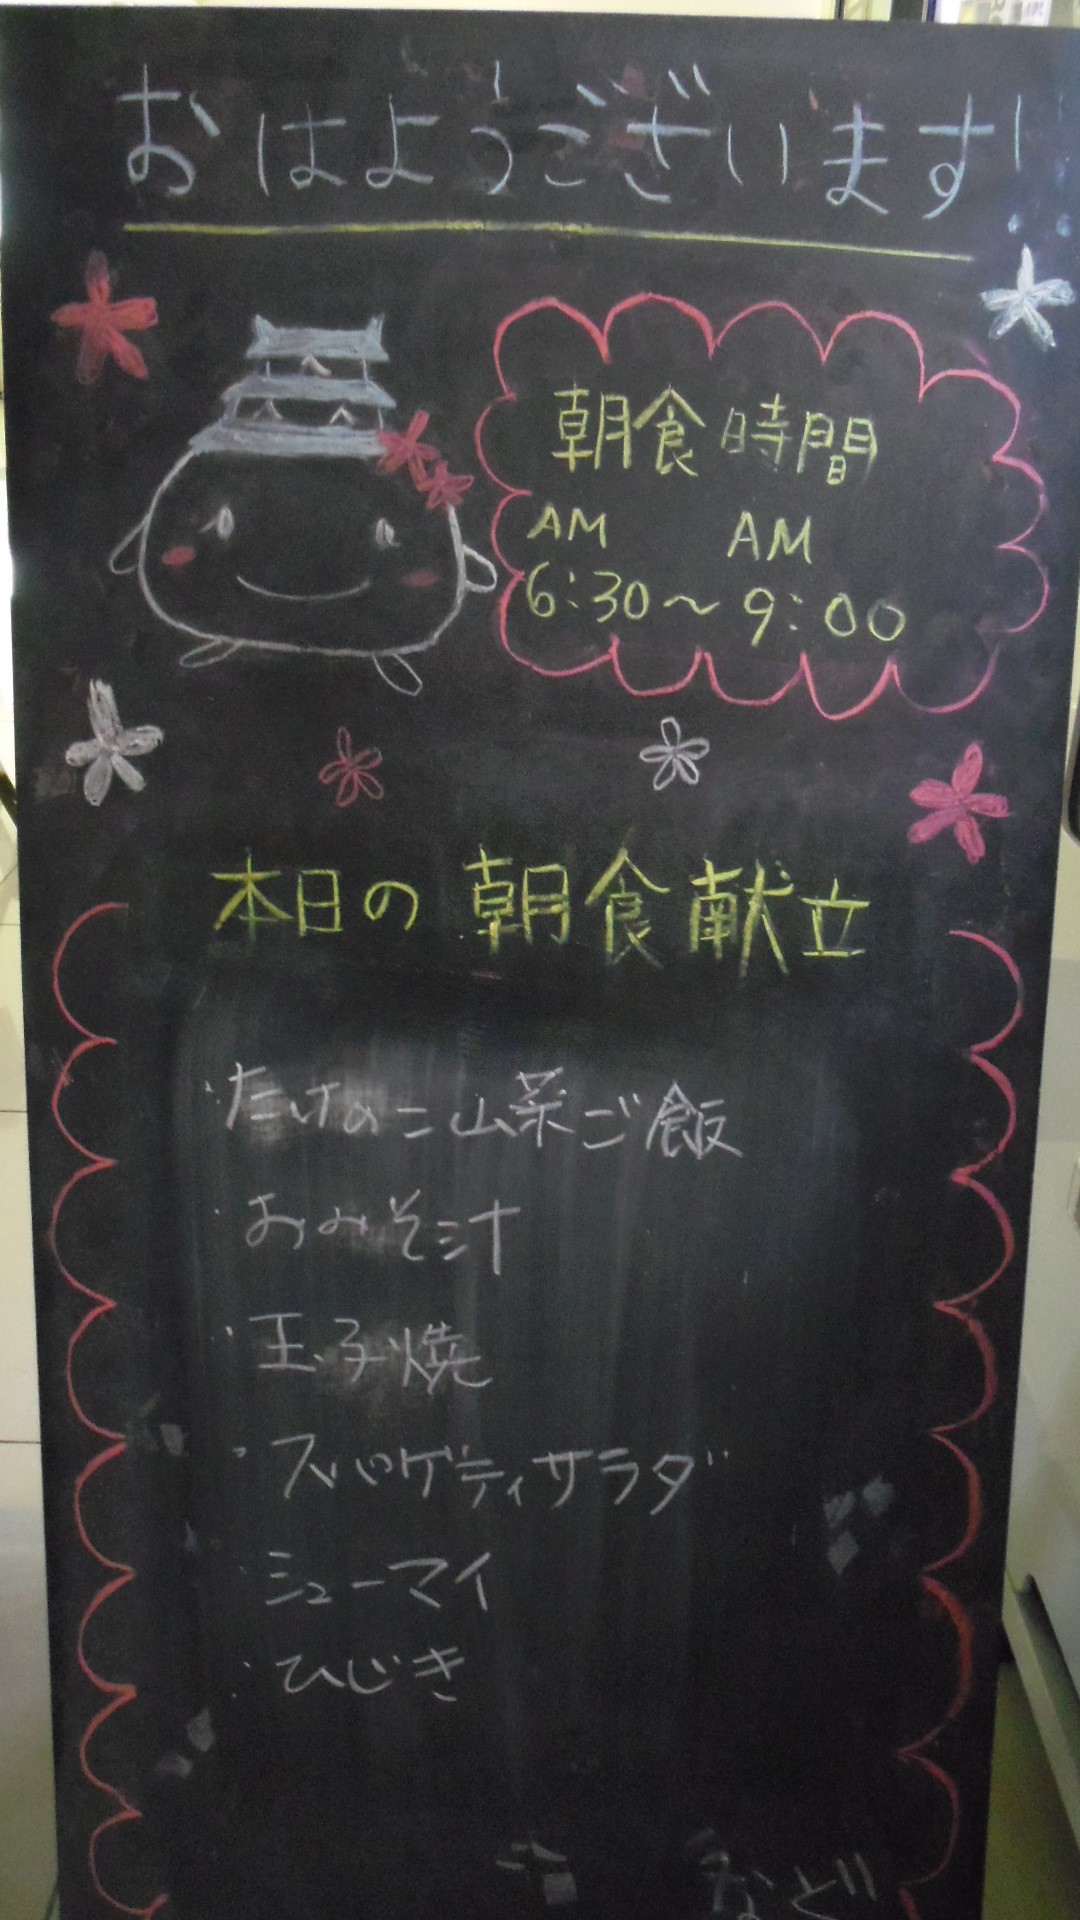 おはようございます!!
朝食時間
AM AM
6:30～9:00
本日の朝食献立
・たけのこ山菜ご飯
・おみそ汁
・玉子焼
・スパゲティサラダ
・シューマイ
・ひじき
など